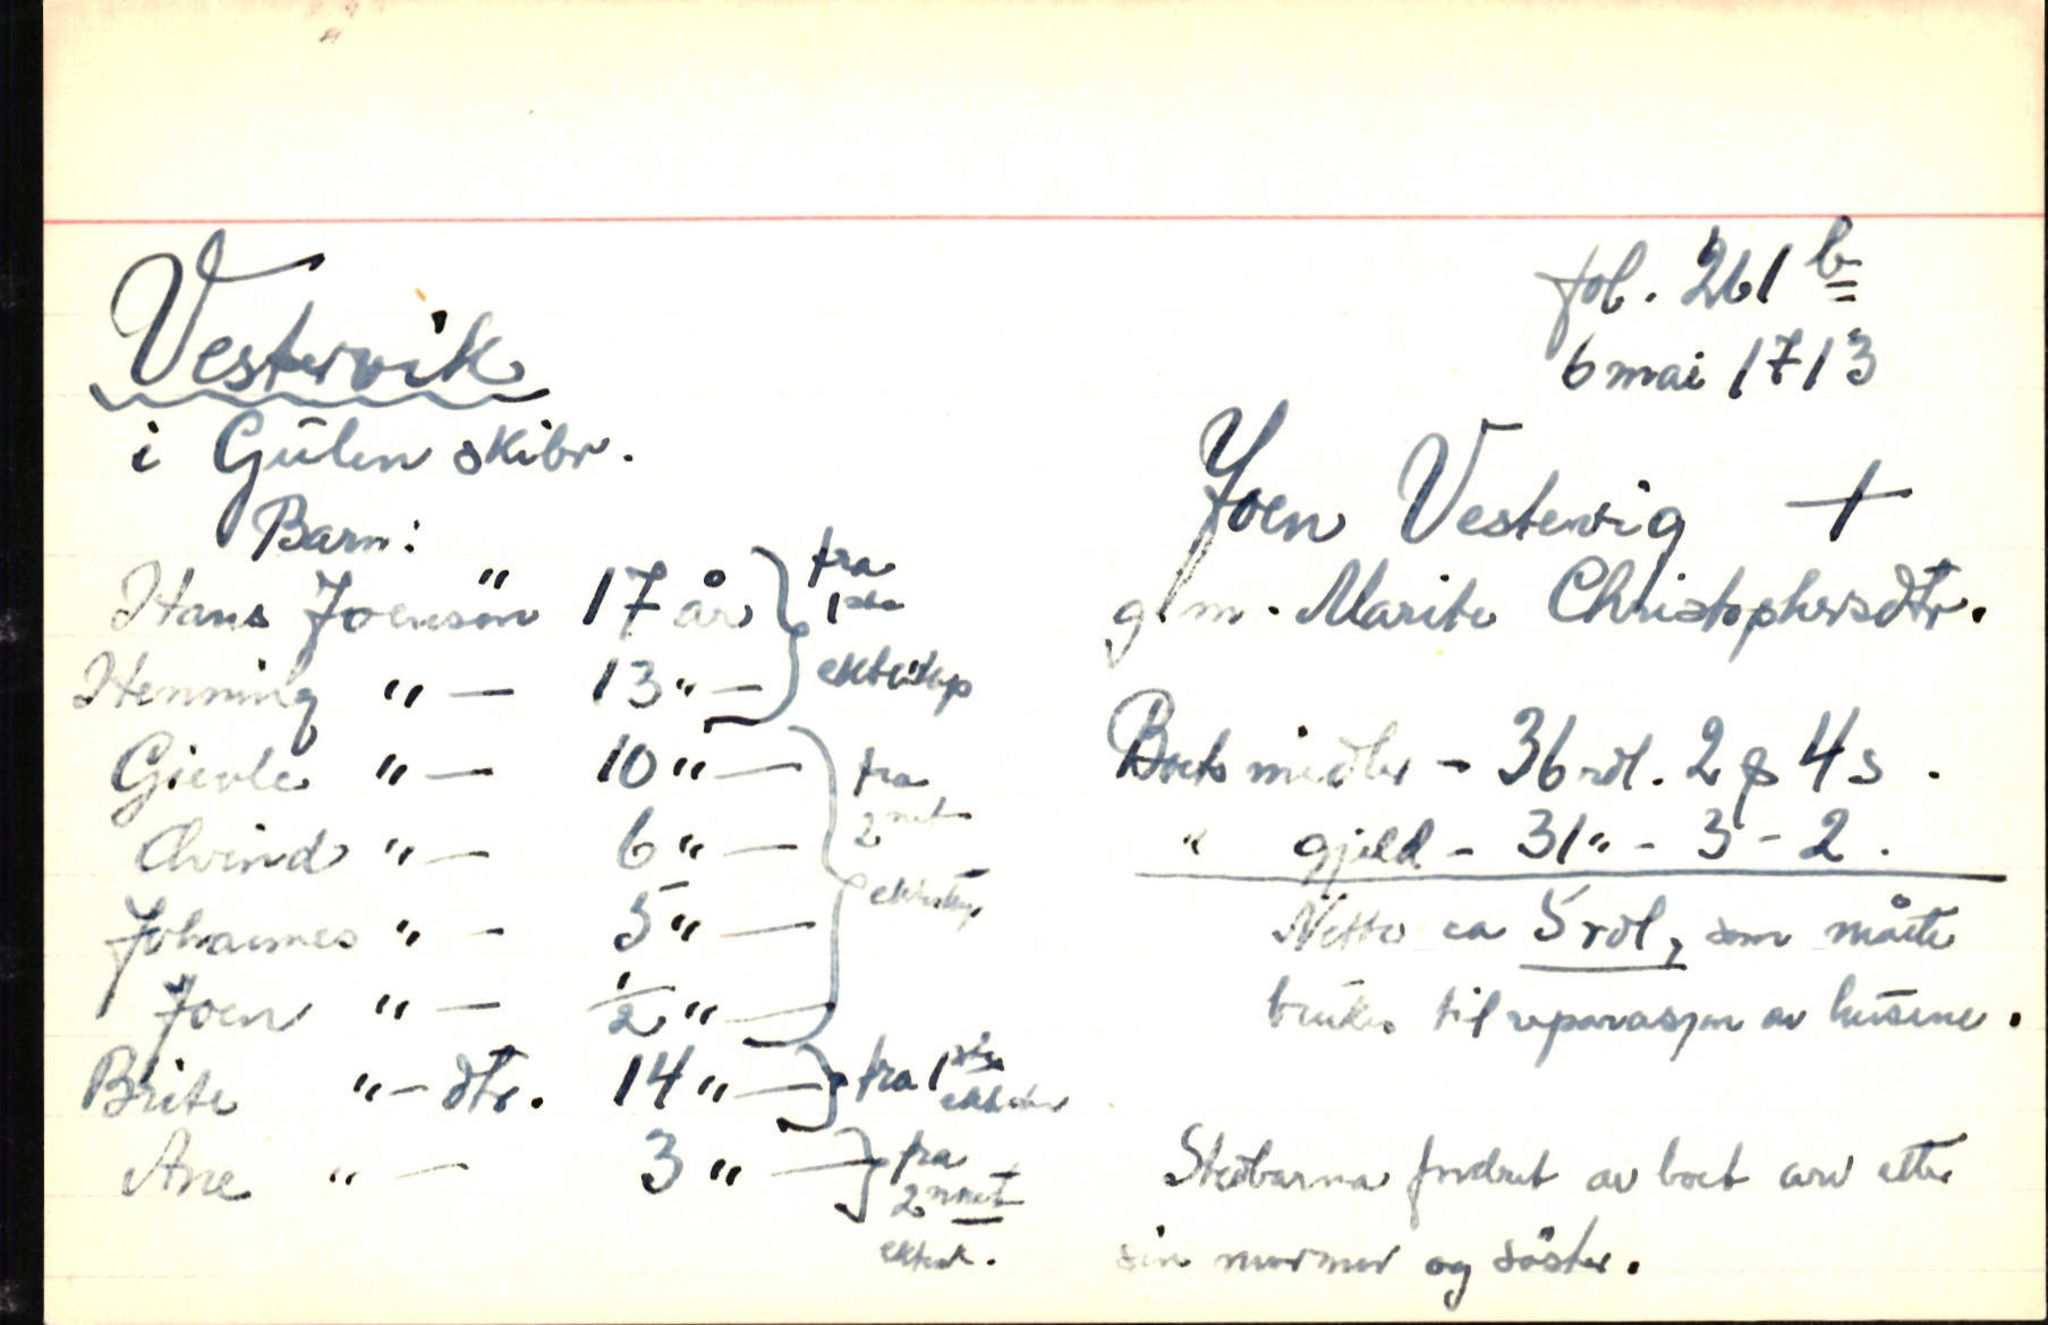 Vestervik
i Gülen skibr.
Barn:
Hans Joensön 17 år } fra 1ste ekteskap
Henning " — 13 " —
Gievle " — 10 " — } fra 2net ekteskap
Eivind " — 6 " —
Johannes " — 5 " —
Joen " — 1/2 " —
Brite " — dtr. 14 " — } fra 1ste
Ane " — 3 " — } fra 2nnet
ektesk.
fol. 261 b
6 mai 1713
Joen Vestervig +
g/m. Marite Christophersdtr.
Boets midler - 36 rdl. 2 ß 4 s.
" gjeld - 31 " - 3 - 2.
Netto ca 5 rdl, som måtte
brukes til reparasjon av husene.
Stedbarna fordret av boet arv etter
sin mormor og söster.